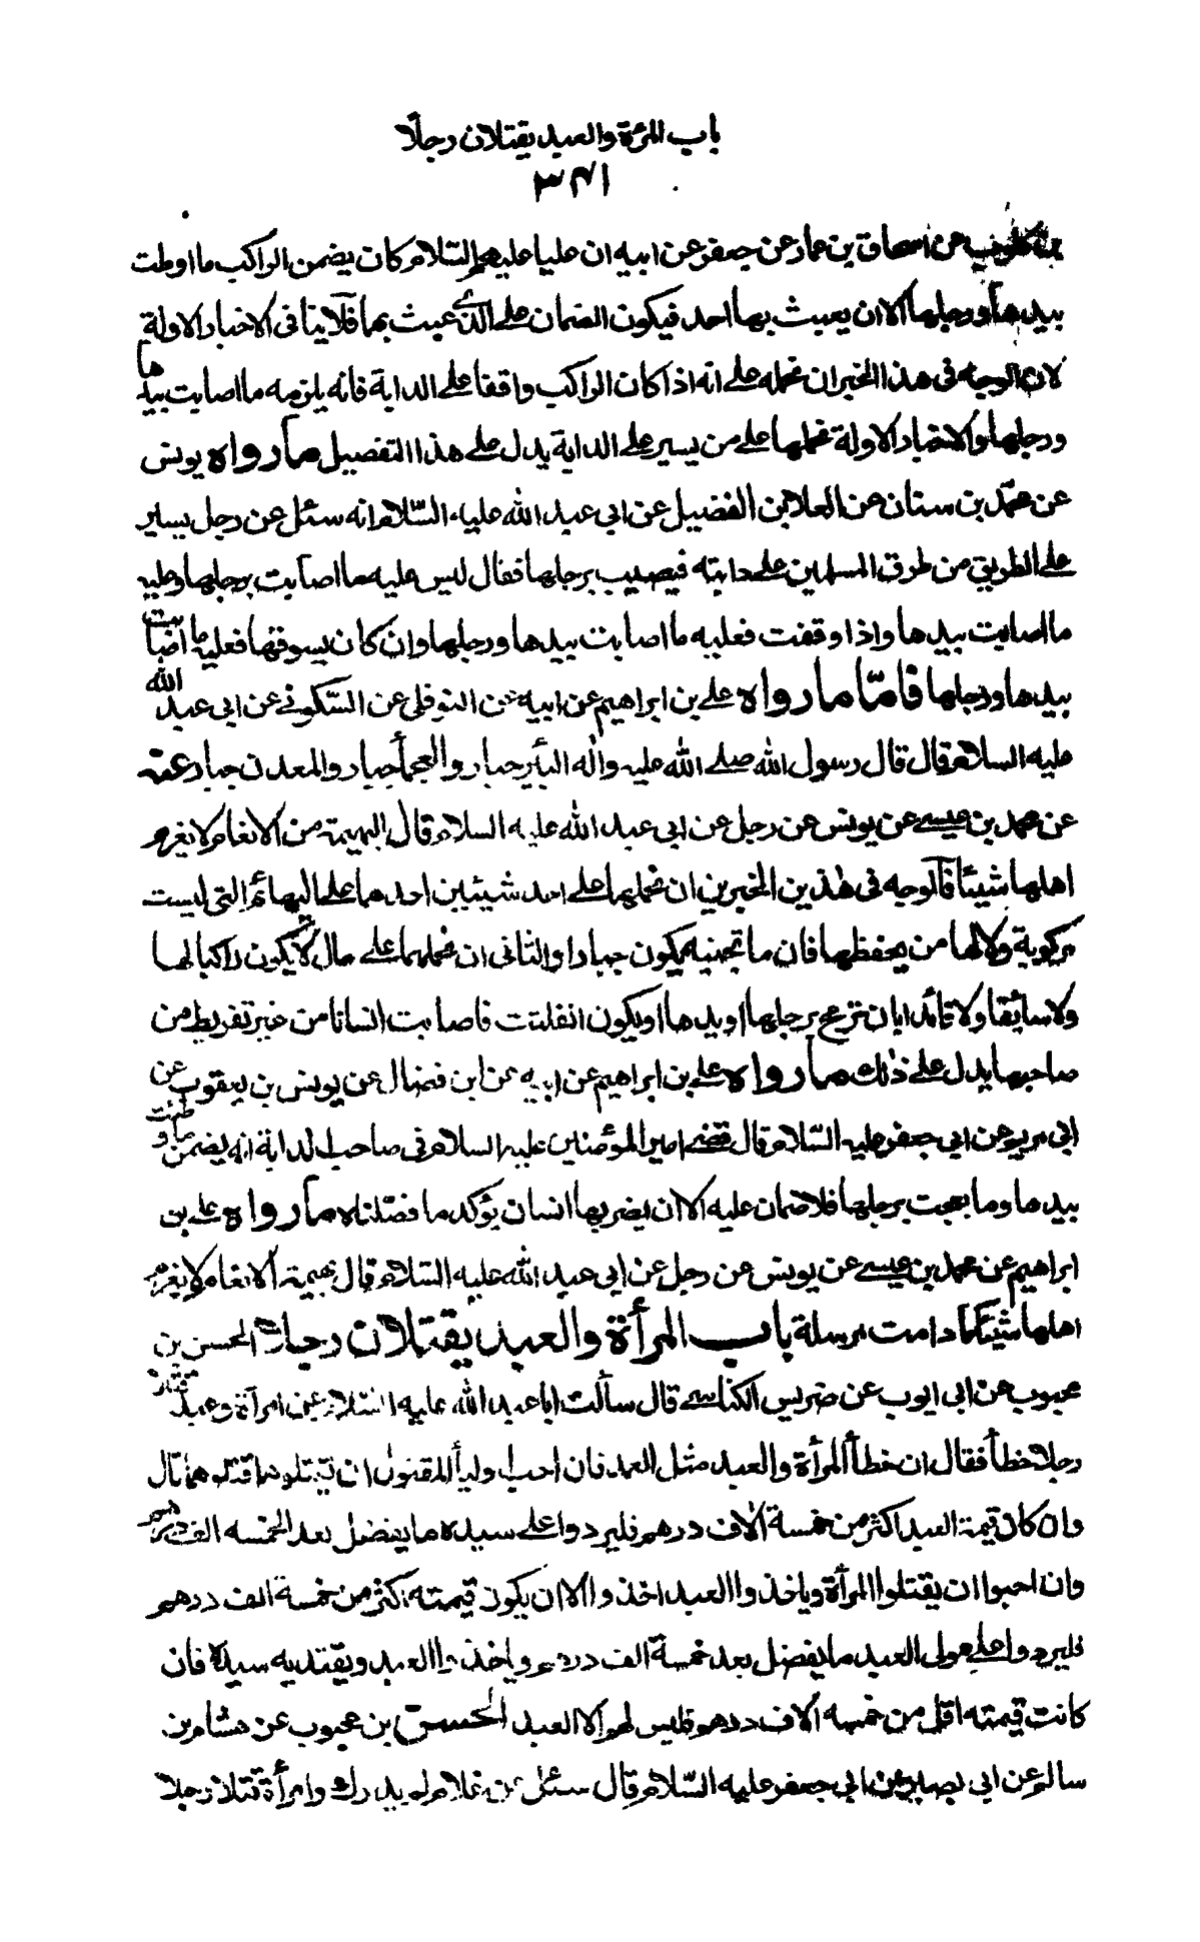 باب المرئة والعبد يقتلان رجلًا
٣٤١
بن كلوب عن اسحاق بن عمار عن جعفر عن ابيه ان عليا عليهم السلام كان يضمن الراكب ما اوطت
بيدها ورجلها الا ان يعبث بها احد فيكون الضمان على الذي عبث بها فلا ينافى الاخبار الاولة
لان الوجه فى هذا الخبر ان نحمله على انه اذا كان الراكب واقفا على الدابة فانه يلزمه ما اصابت بيدها
ورجلها والاخبار الاولة نحملها على من يسير على الدابة يدل على هذا التفصيل ما رواه يونس
عن محمد بن سنان عن العلا بن الفضيل عن ابي عبد الله عليه السّلام انه سئل عن رجل يسير
على الطريق من طرق المسلمين على دابته فيصيب برجلها فقال ليس عليه ما اصابت برجلها وعليه
ما اصابت بيدها واذا وقفت فعليه ما اصابت بيدها ورجلها وان كان يسوقها فعليه ما اصابت
بيدها ورجلها فامّا ما رواه على بن ابراهيم عن ابيه عن النوفلى عن السّكونى عن ابى عبد الله
عليه السلام قال قال رسول الله صلى الله عليه وآله البئر جبار والعجمأ جبار والمعدن جبار عنه
عن محمد بن عيسى عن يونس عن رجل عن ابى عبد الله عليه السلام قال البهيمة من الانعام لا يغرم
اهلها شيئا فالوجه فى هذين الخبرين ان نحملهما على احد شيئين احدهما على البهائم التى ليست
مركوبة ولا لها من يحفظها فان ما تجنيه يكون جبارا والثانى ان نحملهما على حال لا يكون راكبا لها
ولا سائقا ولا قائدا بان ترمح برجلها او يدها او يكون انفلتت فاصابت انسانا من غير تفريط من
صاحبها يدل على ذلك ما رواه على بن ابراهيم عن ابيه عن ابن فضال عن يونس بن يعقوب عن
ابى مريم عن ابى جعفر عليه السّلام قال قضى امير المؤمنين عليه السلام فى صاحب الدابة انه يضمن ما وطئت
بيدها وما بعجت برجلها فلا ضمان عليه الا ان يضربها انسان يؤكد ما فصّلناه ما رواه على بن
ابراهيم عن محمد بن عيسى عن يونس عن رجل عن ابى عبد الله عليه السّلام قال بهيمة الانعام لا يغرم
اهلها شيئا ما دامت مرسلة باب المرأة والعبد يقتلان رجلا الحسن بن
محبوب عن ابى ايوب عن ضريس الكناسى قال سألت ابا عبد الله عليه السّلام عن امرأة وعبد قتلا
رجلا خطأ فقال ان خطأ المرأة والعبد مثل العمد فان احب وليأ المقتول ان يقتلوهما قتلوهما قال
وان كان قيمة العبد اكثر من خمسة آلاف درهم فليردوا على سيده ما يفضل بعد الخمسه الف درهم
وان احبوا ان يقتلوا المرأة وياخذوا العبد اخذوا الا ان يكون قيمته اكثر من خمسة الف درهم
فليردوا على مولى العبد ما يفضل بعد خمسة الف درهم وياخذوا العبد ويقتديه سيده فان
كانت قيمته اقل من خمسه آلاف درهم فليس لهم الا العبد الحسن بن محبوب عن هشام بن
سالم عن ابى بصير عن ابى جعفر عليه السّلام قال سئل عن غلام لم يدرك وامرأة قتلا رجلا